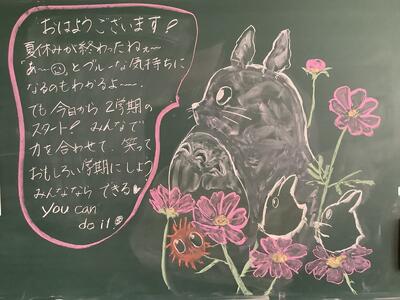 おはようございます!
夏休みが終わったねぇ〜
「あ〜☹」とブルーな気持ちに
なるのもわかるよ〜。
でも今日から2学期の
スタート!みんなで
力を合わせて、笑って
おもしろい学期にしよう
みんなならできる♥
you can
do it!